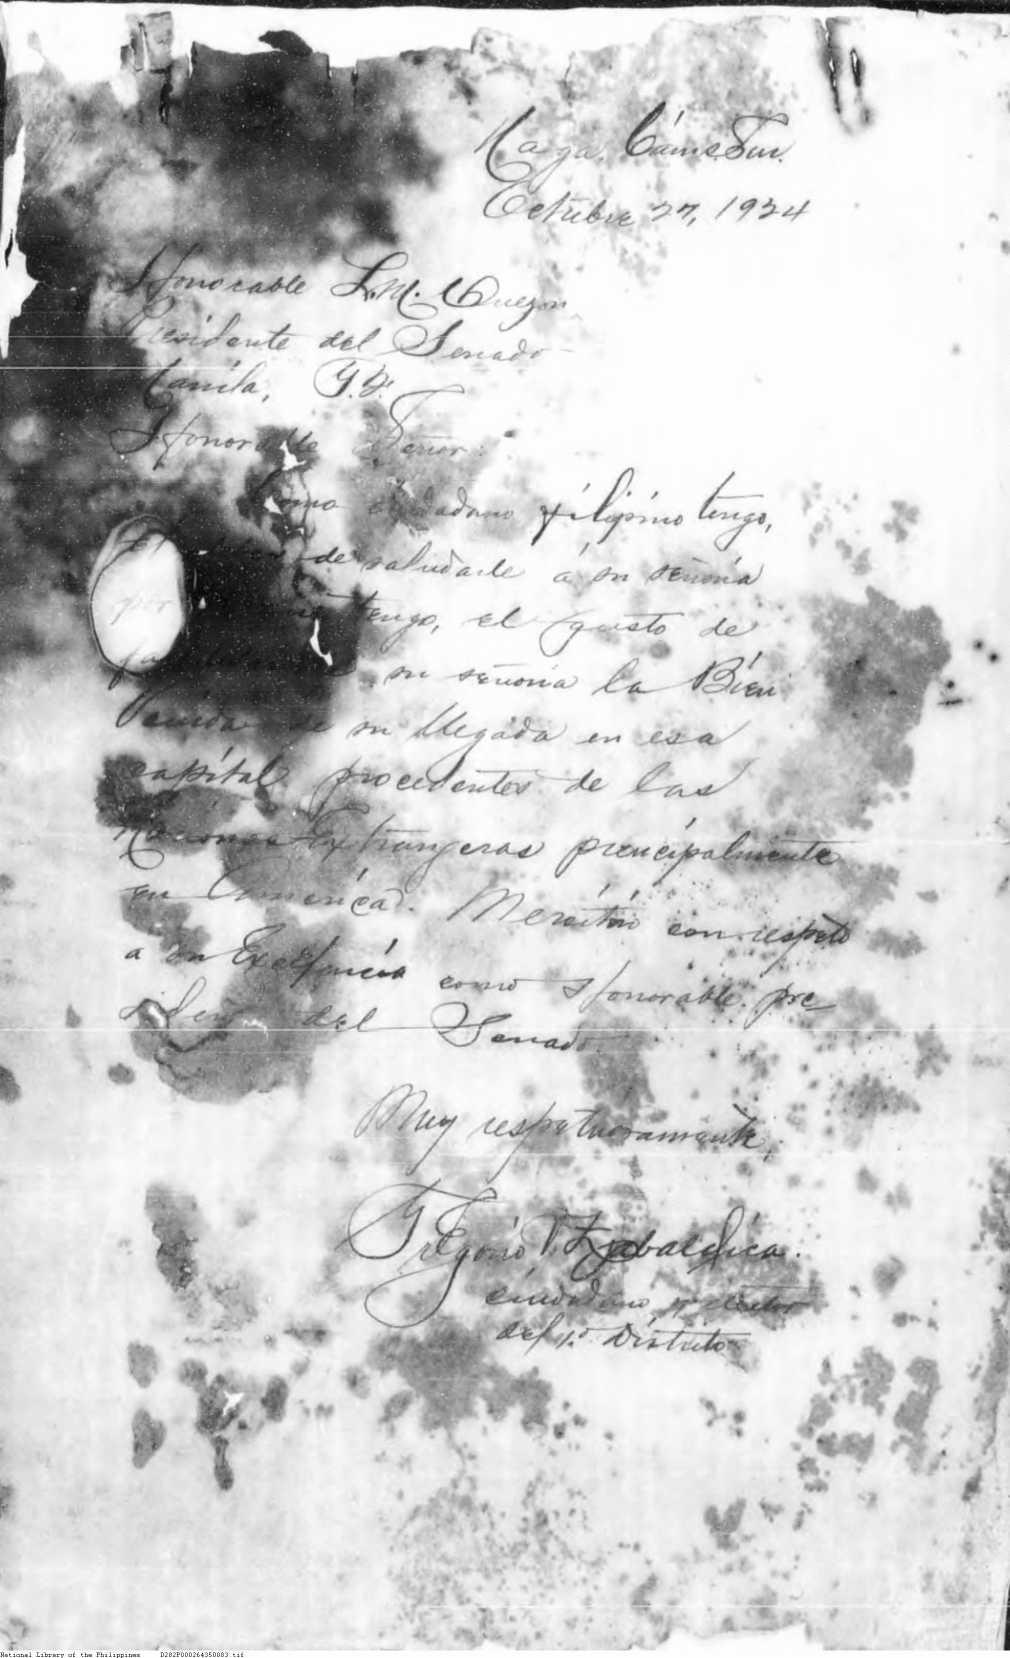 Naga, Cams. Sur.
Octubre 27, 1934
Honorable L.M. Quezon
Presidente del Senado
Manila, I.F.
Honorable Señor:
Como ciudadano filipino tengo,
de saludarle á su señoria
por tengo, el gusto de
su señoria la Bien
Venida de su llegada en esa
capital procedentes de las
Naciones Extrangeras principalmente
en America. con respeto
a su Excelencia como Honorable pre-
del Senado.
Muy respetuosamente,
Gregorio
ciudadano y elector
del 1.º Distrito
National Library of the Philippines D282P000264350083.tif